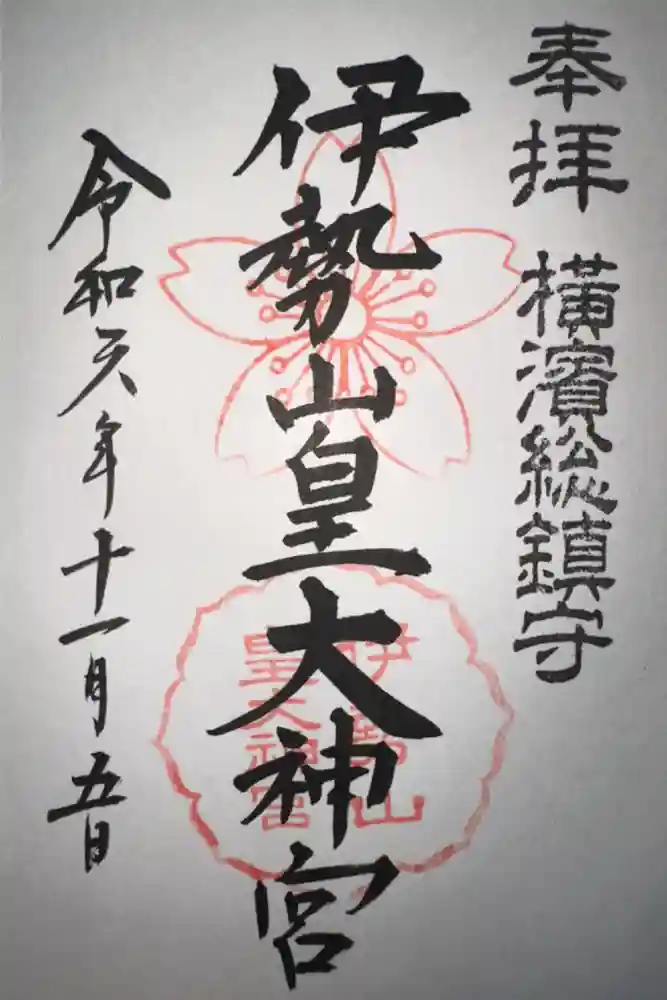 奉拝 横濱総鎮守
伊勢山皇大神宮
伊勢山
皇大神宮
令和元年十一月五日